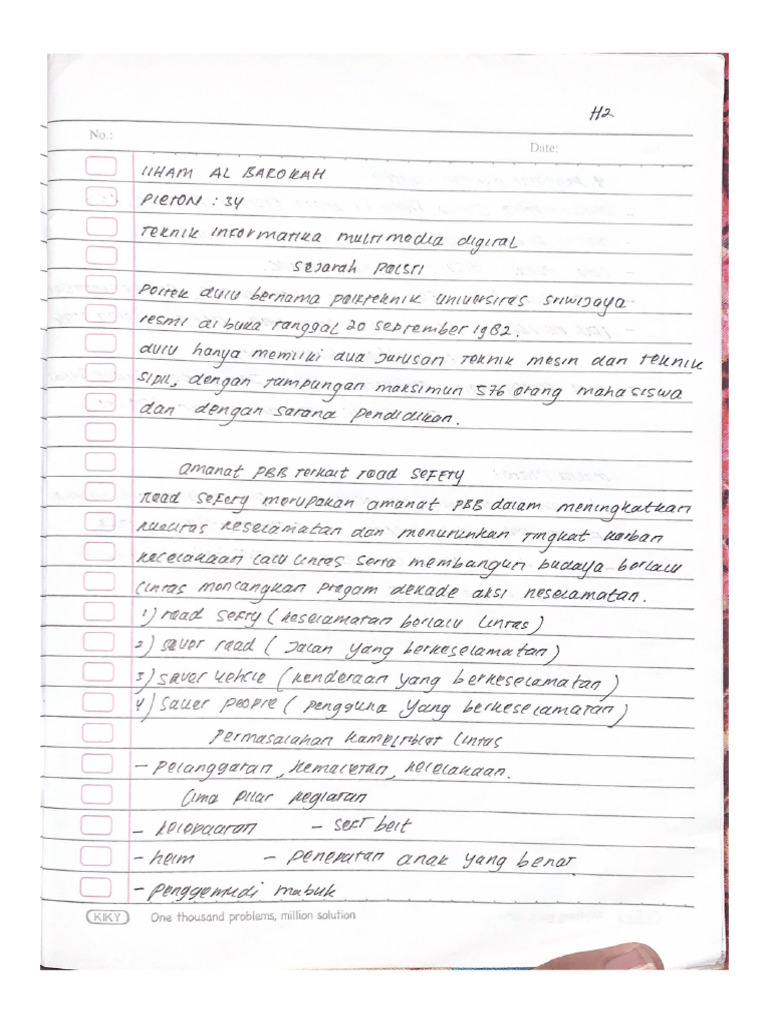 H2
No.:
Date:
ILHAM AL BAROKAH
PLETON : 34
TEKNIK INFORMATIKA MULTIMEDIA DIGITAL
SEJARAH POLSRI
POLTEK DULU bernama POLITEKNIK UNIVERSITAS SRIWIJAYA
resmi di buka tanggal 20 September 1982.
dulu hanya memiliki dua Jurusan TEKNIK mesin dan TEKNIK
SIPIL, dengan Tampungan maksimun 576 orang mahasiswa
dan dengan sarana pendidikan.
Amanat PBB Terkait road SEFETY
Road Sefety merupakan amanat PBB dalam meningkatkan
kualitas keselamatan dan menurunkan Tingkat korban
kecelakaan lalu lintas serta membangun budaya berlalu
lintas mencangkan program dekade aksi keselamatan.
1) road SEFTY (keselamatan berlalu lintas)
2) saver road ( Jalan yang berkeselamatan)
3) saver vehicle (kenderaan yang berkeselamatan)
4) saver people ( pengguna yang berkeselamatan)
Permasalahan Lintas
- Pelanggaran, kemacetan, kecelakaan.
Lima Pilar kegiatan
- - SEFT belt
- helm - penempatan anak yang benar.
- penggemudi mabuk
KIKY One thousand problems, million solution